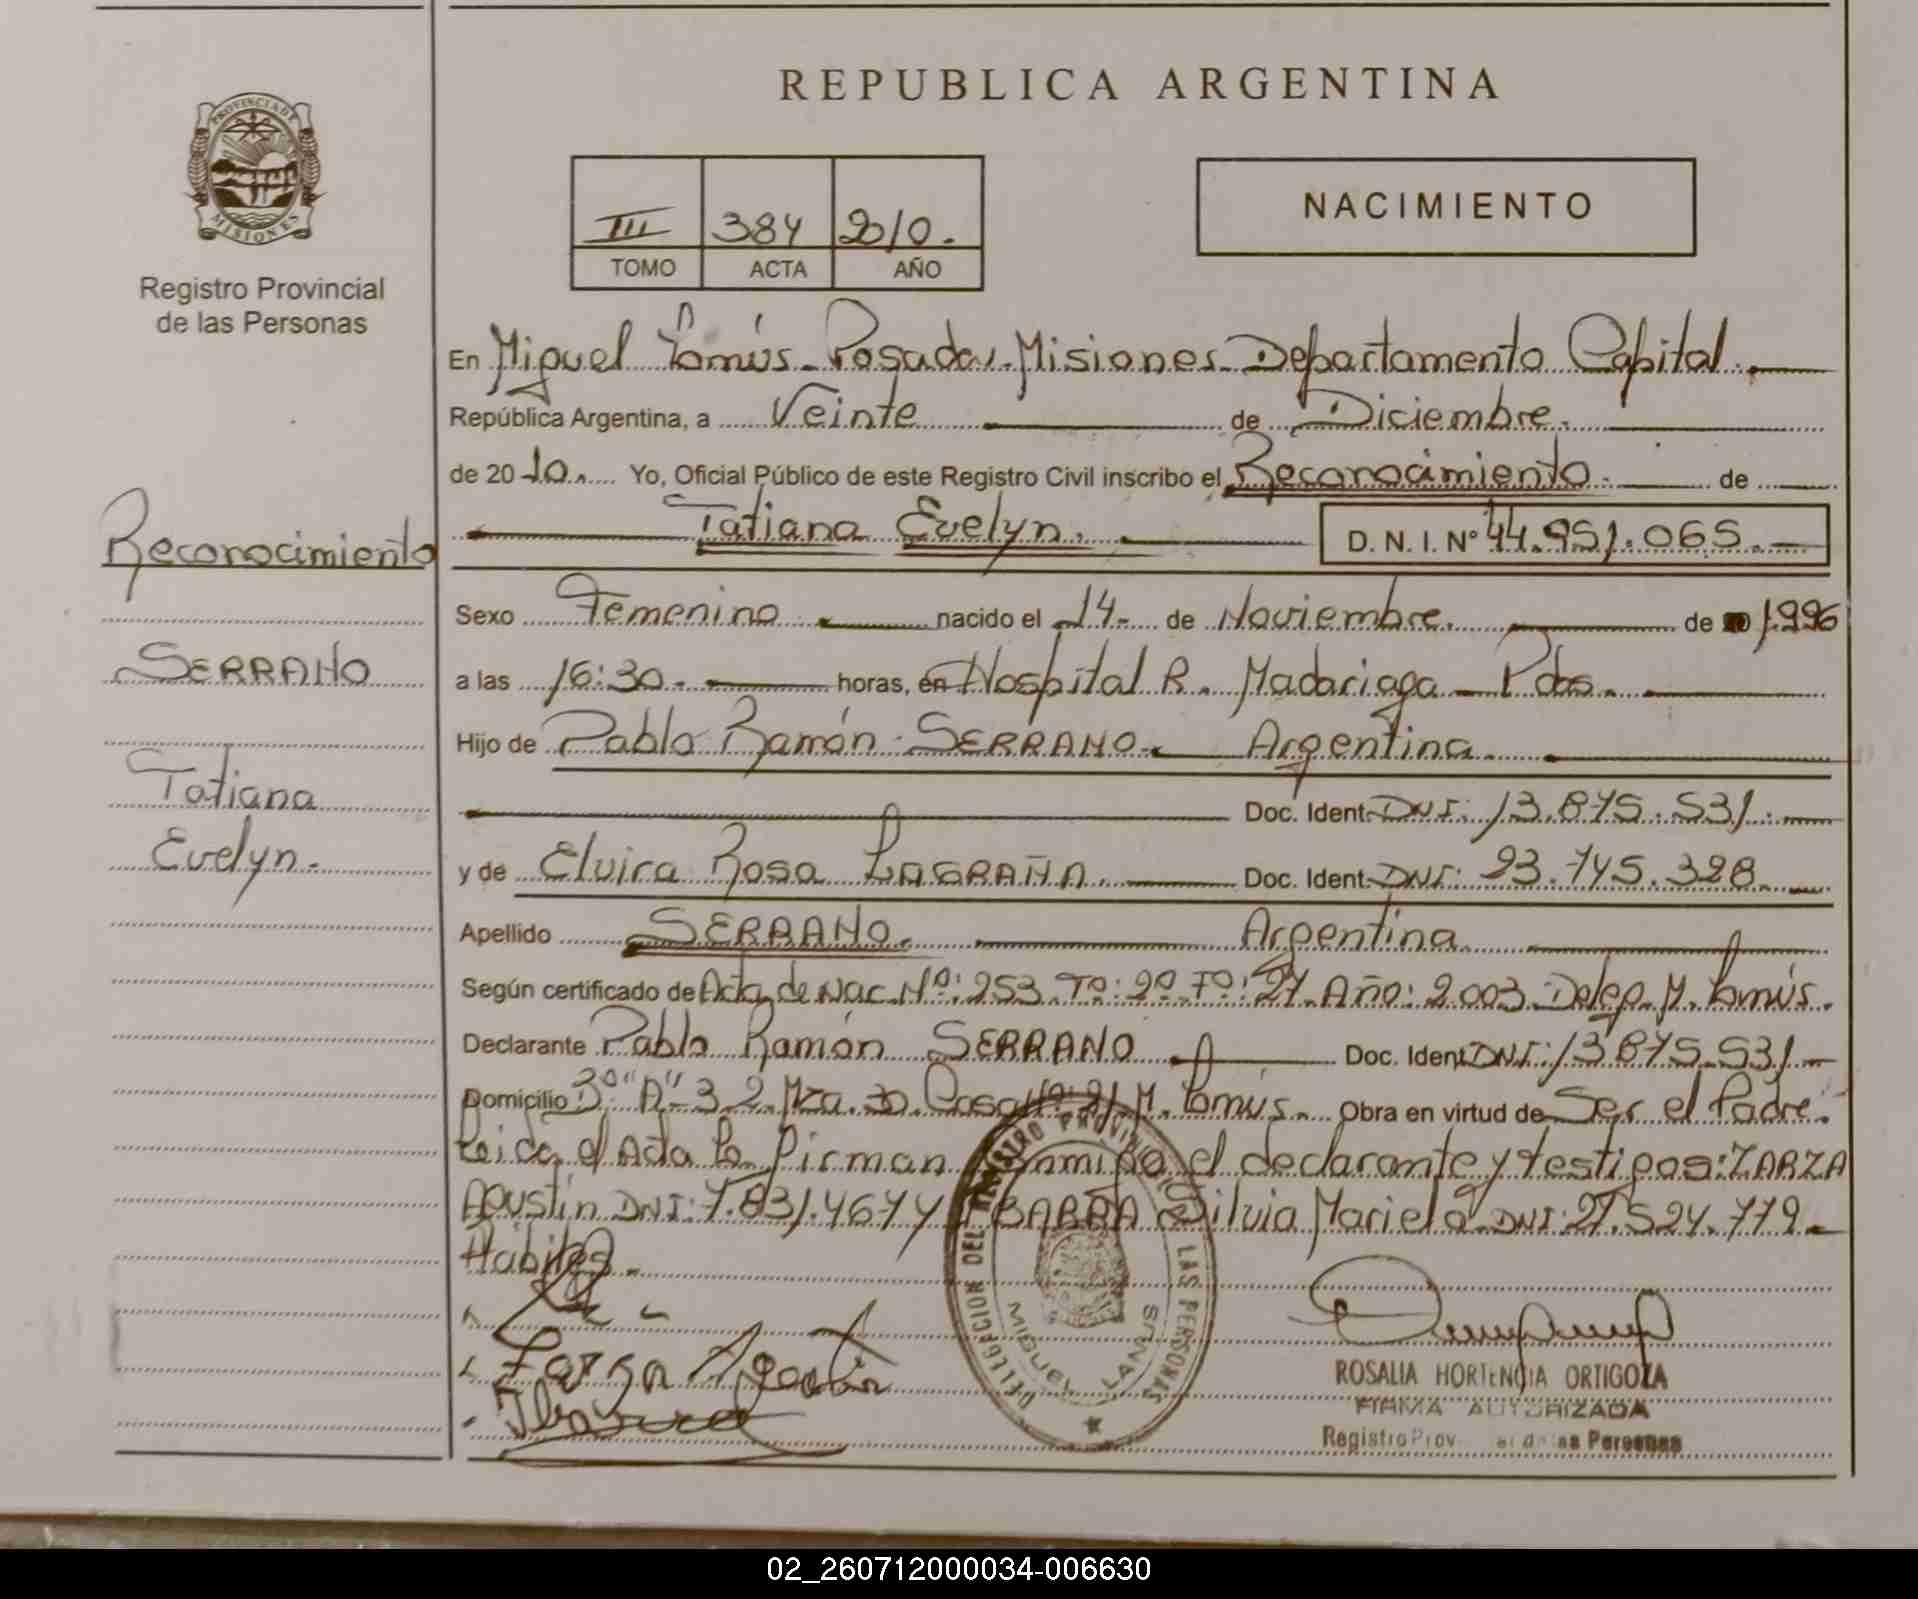 REPUBLICA ARGENTINA
PROVINCIA DE
MISIONES
Registro Provincial
de las Personas
III 384 2010.
TOMO ACTA AÑO
NACIMIENTO
En Miguel Lanús - Posadas - Misiones Departamento Capital.
República Argentina, a Veinte de Diciembre.
de 2010. Yo, Oficial Público de este Registro Civil inscribo el Reconocimiento de
Tatiana Evelyn. D. N. I. Nº 44.951.065.
Reconocimiento
SERRANO
Tatiana
Evelyn.
Sexo Femenino nacido el 14 de Noviembre. de 1996
a las 16:30. horas, en Hospital R. Madariaga - Pdas.
Hijo de Pablo Ramón SERRANO Argentina
Doc. Ident. DNI: 13.875.531.
y de Elvira Rosa LAGRAÑA. Doc. Ident. DNI: 23.745.328.
Apellido SERRANO. Argentina
Según certificado de Acta de Nac. Nº: 253 Tº: 2º Fº: 27. Año: 2.003 Deleg. M. Lanús.
Declarante Pablo Ramón SERRANO Doc. Ident. DNI: 13.875.531
Domicilio 3º "A" 32 Mza. 30 Casa Nº: 21 M. Lanús. Obra en virtud de Ser el Padre.
Leida el Acta la Firman Conmigo el declarante y testigos: ZARZA
Agustín DNI: 7.831.467 Y IBARRA Silvia Mariela DNI: 27.524.779
Habiles.
Zarza Agustin
Ibarra
DELEGACION DEL REGISTRO PROVINCIAL DE LAS PERSONAS
MIGUEL LANUS
ROSALIA HORTENCIA ORTIGOZA
FIRMA AUTORIZADA
Registro Prov de las Personas
02_260712000034-006630